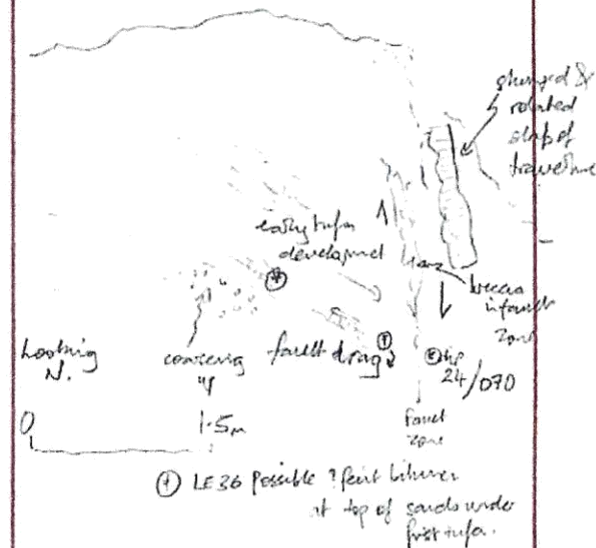 slumped &
rotated
slab of
travertine
early tufa
development
breccia
in fault
zone
Looking
N.
coarsening
fault drag
24/070
0
1.5m
fault
zone
LE36 possible ? faint
at top of sands under
first tufa.